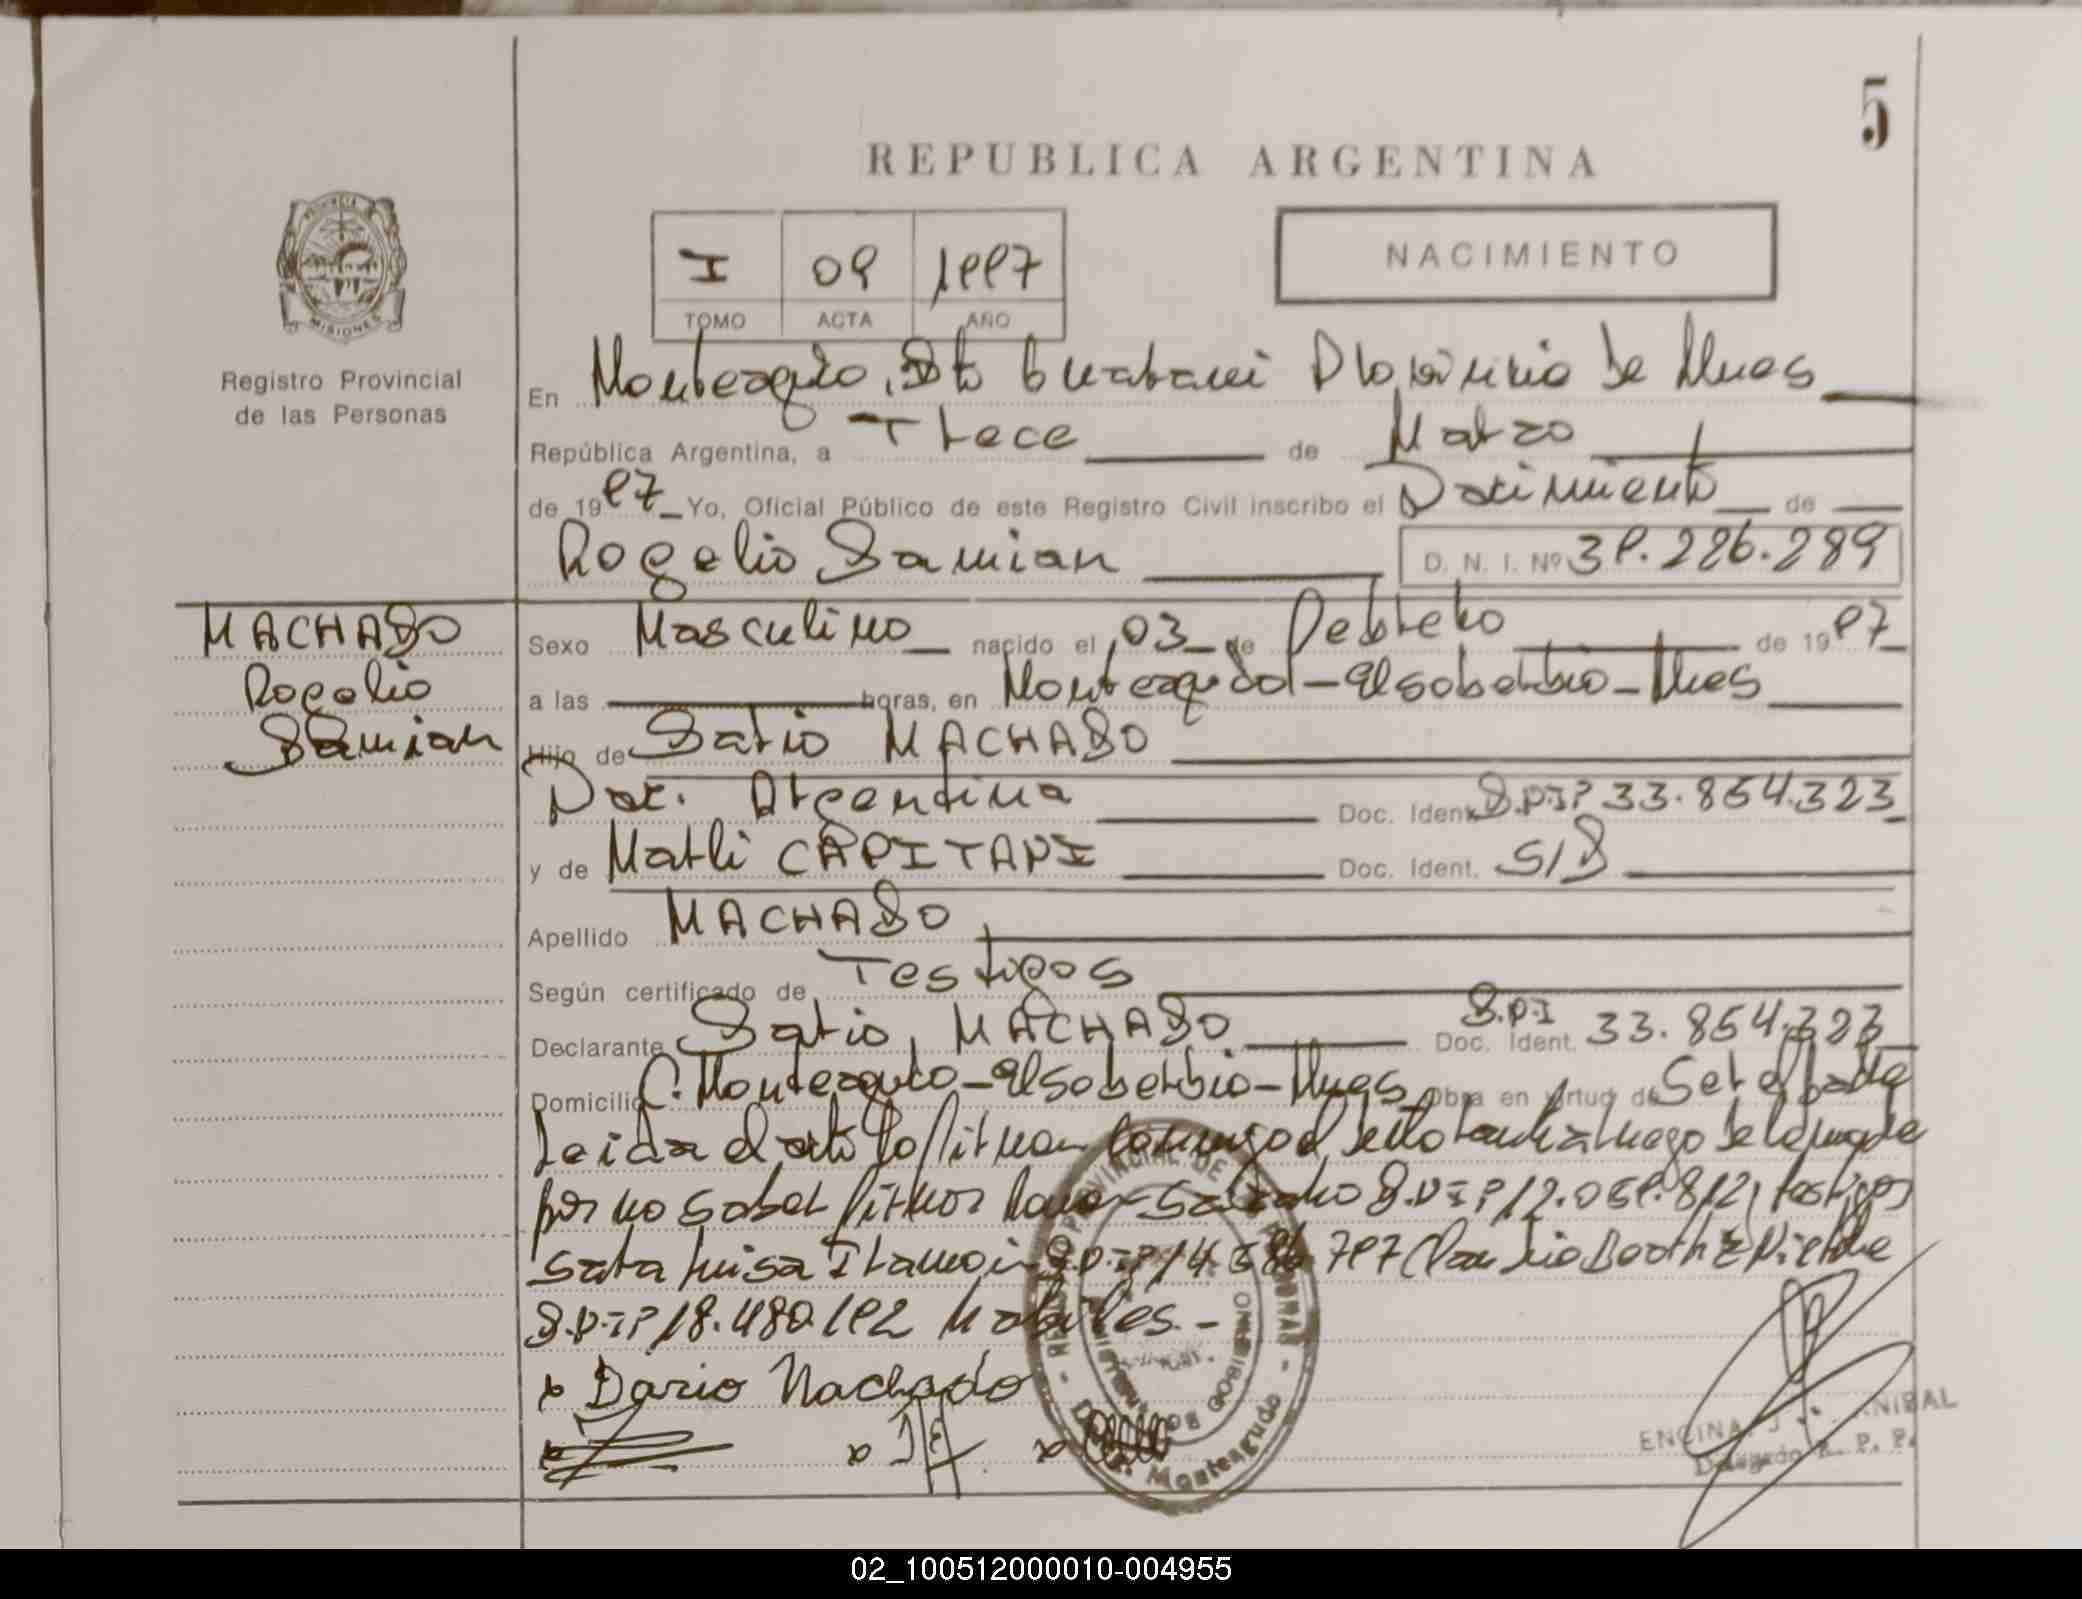 5
REPUBLICA ARGENTINA
I 09 1997
TOMO ACTA AÑO
NACIMIENTO
PROVINCIA DE MISIONES
Registro Provincial
de las Personas
En Monteagudo, Dto Guarani Provincia de Mnes
República Argentina, a Trece de Marzo
de 1997 Yo, Oficial Público de este Registro Civil inscribo el Nacimiento de
Rogelio Damian D. N. I. Nº 39.226.289
MACHADO
Rogelio
Damian
Sexo Masculino nacido el 03 de Febrero de 1997
a las horas, en Monteagudo - El soberbio - Mnes
Hijo de Dario MACHADO
Nac. Argentina Doc. Ident. D.N.I. 33.854.323
y de Marli CAPITANI Doc. Ident. S/D
Apellido MACHADO
Según certificado de Testigos
Declarante Dario MACHADO D.N.I Doc. Ident. 33.854.323
Domicilio C. Monteagudo - El soberbio - Mnes Obra en virtud de Ser el padre
Leida el acta firman conmigo el
por no saber firmar testigos
Sara Luisa
18.480.192 habiles. -
x Dario Machado
x x x
REGISTRO PROVINCIAL DE LAS PERSONAS
MINISTERIO DE GOBIERNO
Monteagudo
ENCINA, J ANIBAL
Delegado R. P. P.
02_100512000010-004955